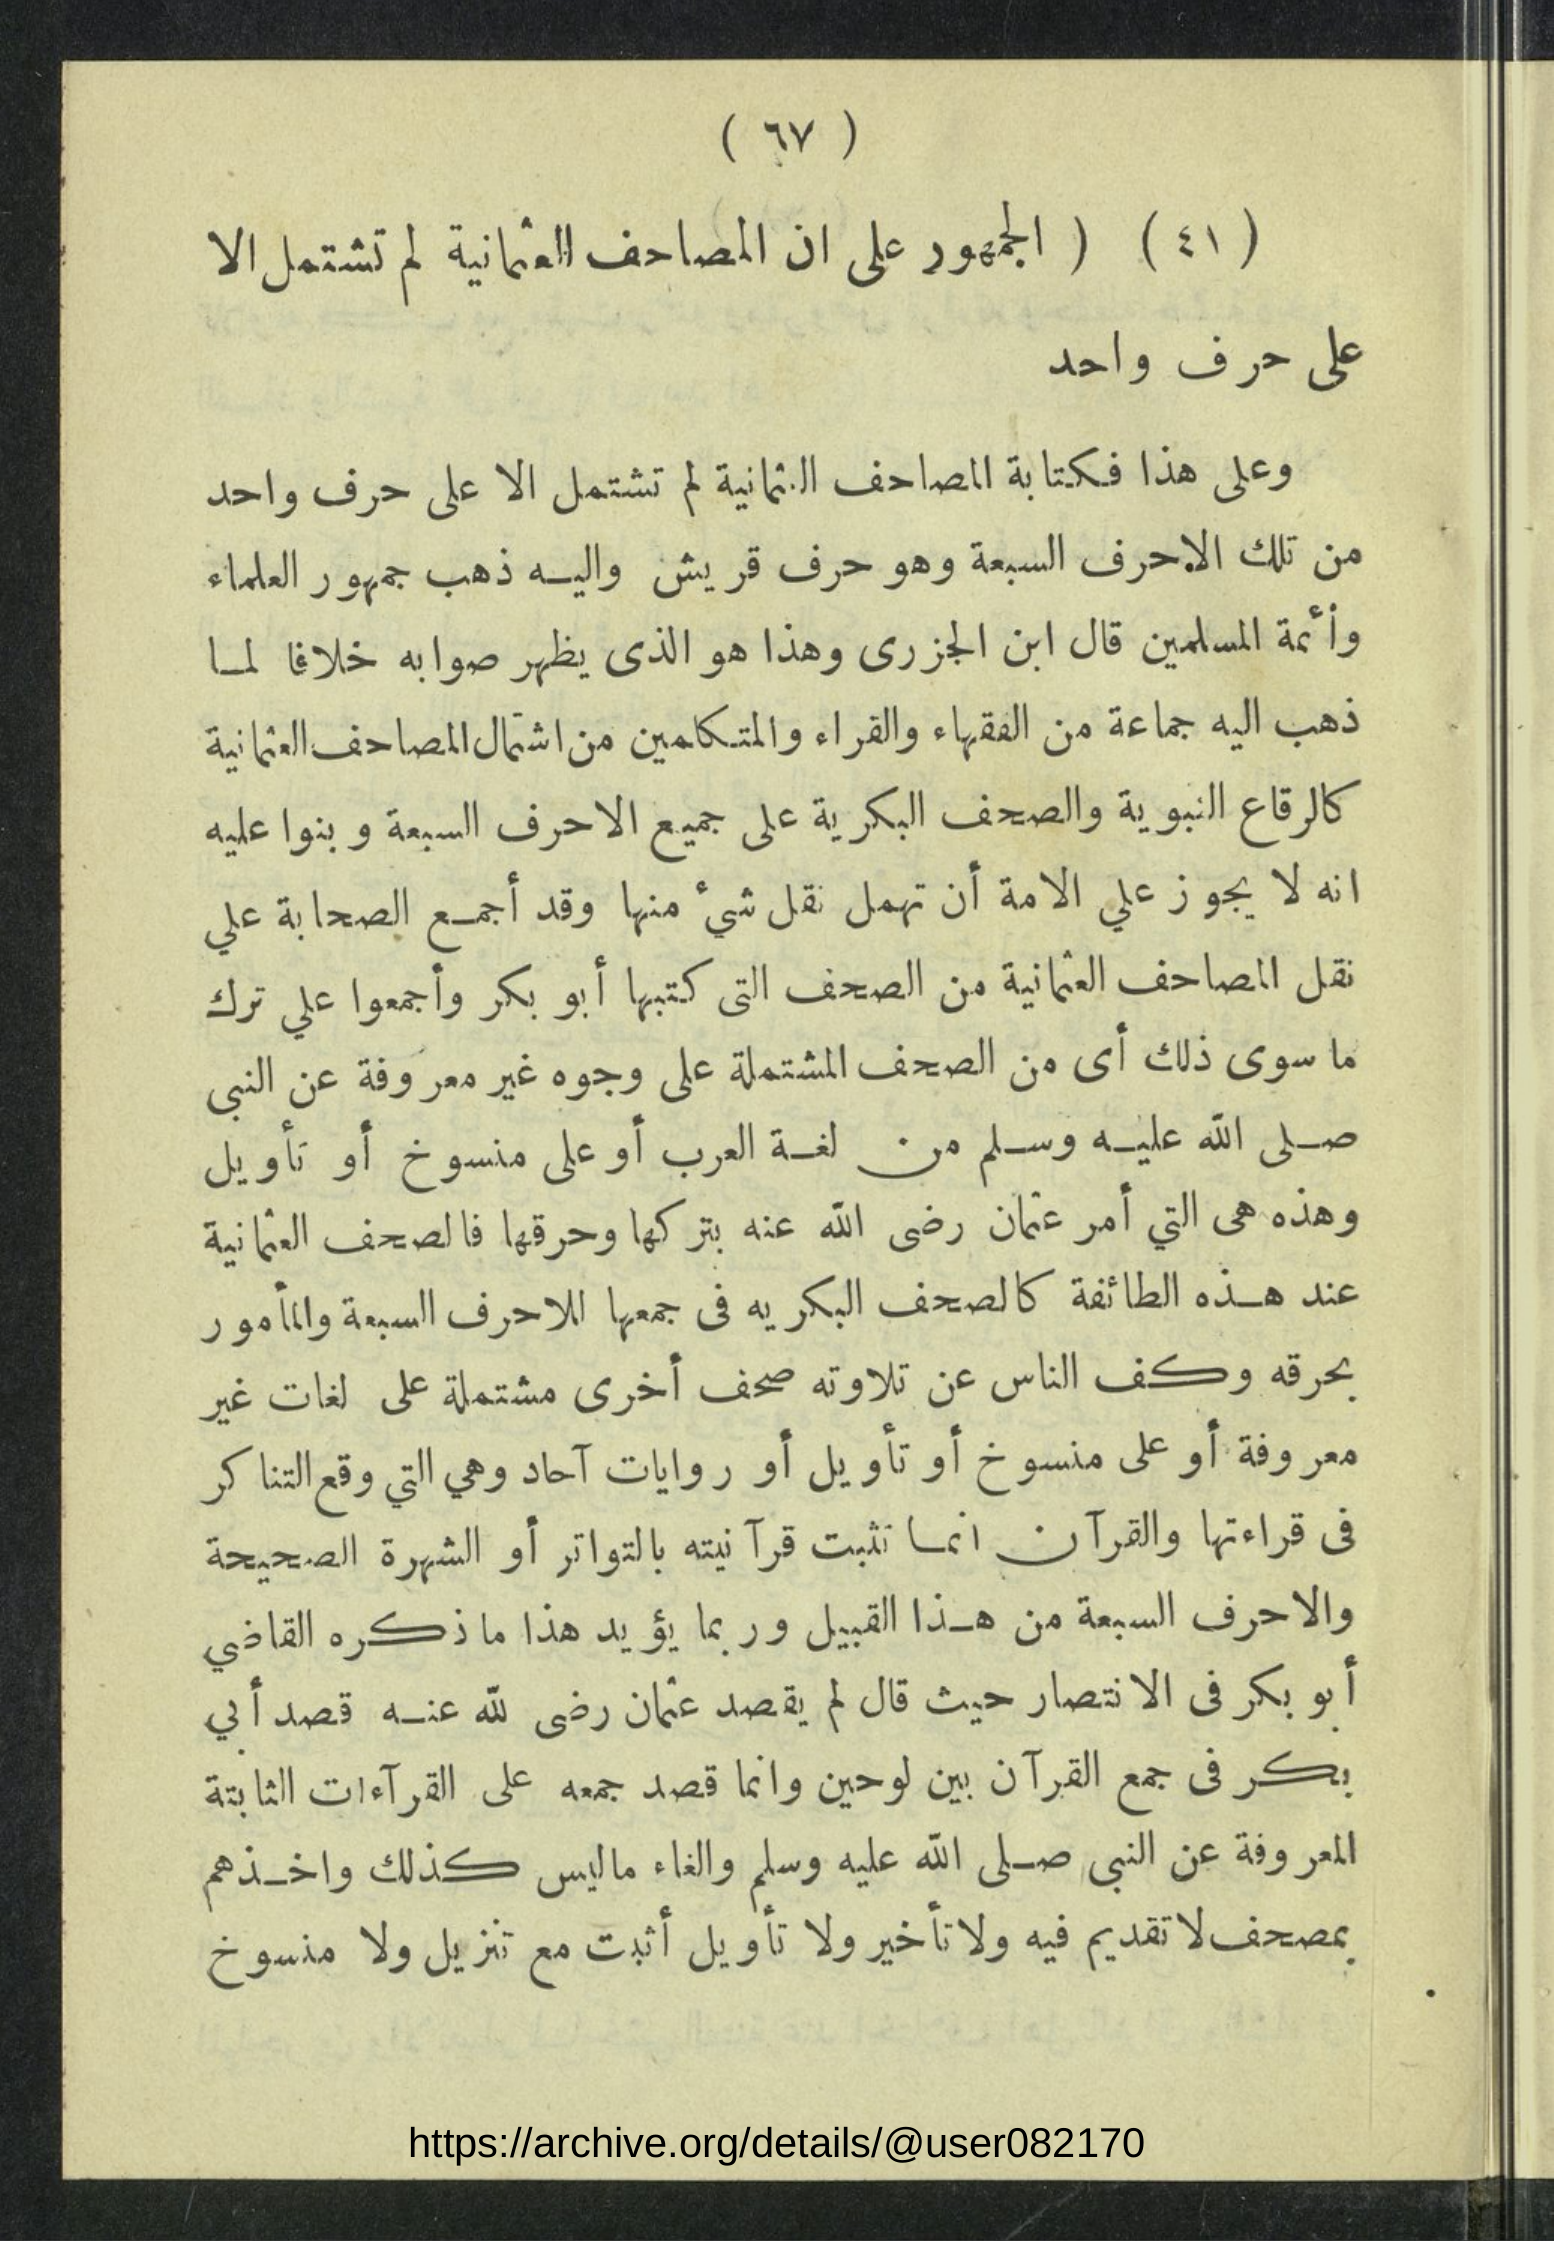 ( ٦٧ )
( ٤١ ) ( الجمهور على ان المصاحف العثمانية لم تشتمل الا
على حرف واحد
وعلى هذا فكتابة المصاحف العثمانية لم تشتمل الا على حرف واحد
من تلك الاحرف السبعة وهو حرف قريش واليه ذهب جمهور العلماء
وأئمة المسلمين قال ابن الجزرى وهذا هو الذى يظهر صوابه خلافا لما
ذهب اليه جماعة من الفقهاء والقراء والمتكلمين من اشتمال المصاحف العثمانية
كالرقاع النبوية والصحف البكرية على جميع الاحرف السبعة وبنوا عليه
انه لا يجوز علي الامة أن تهمل نقل شيء منها وقد أجمع الصحابة علي
نقل المصاحف العثمانية من الصحف التى كتبها أبو بكر وأجمعوا علي ترك
ما سوى ذلك أى من الصحف المشتملة على وجوه غير معروفة عن النبى
صلى الله عليه وسلم من لغة العرب أو على منسوخ أو تأويل
وهذه هى التي أمر عثمان رضى الله عنه بتركها وحرقها فالصحف العثمانية
عند هذه الطائفة كالصحف البكريه فى جمعها للاحرف السبعة والمأمور
بحرقه وكف الناس عن تلاوته صحف أخرى مشتملة على لغات غير
معروفة أو على منسوخ أو تأويل أو روايات آحاد وهي التي وقع التناكر
فى قراءتها والقرآن انما تثبت قرآنيته بالتواتر أو الشهرة الصحيحة
والاحرف السبعة من هذا القبيل وربما يؤيد هذا ما ذكره القاضي
أبو بكر فى الانتصار حيث قال لم يقصد عثمان رضى لله عنه قصد أبي
بكر فى جمع القرآن بين لوحين وانما قصد جمعه على القرآءات الثابتة
المعروفة عن النبى صلى الله عليه وسلم والغاء ماليس كذلك واخذهم
بمصحف لا تقديم فيه ولا تأخير ولا تأويل أثبت مع تنزيل ولا منسوخ
https://archive.org/details/@user082170